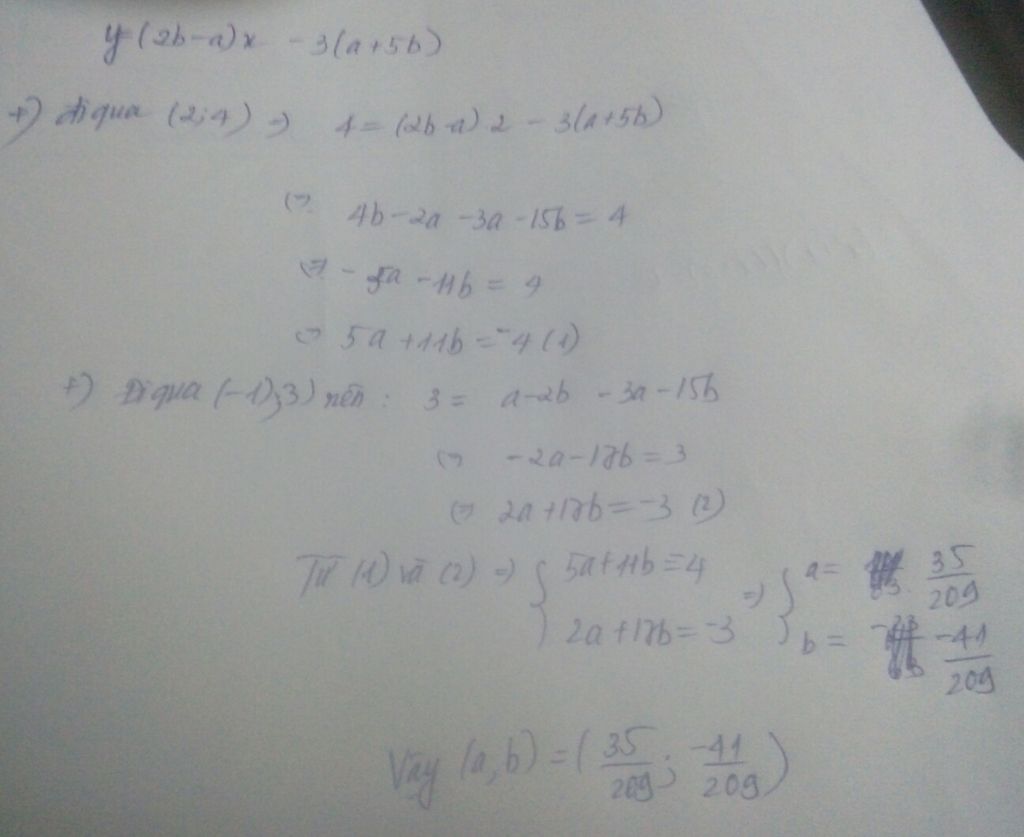 y=(2b-a)x -3(a+5b)
+) đi qua (2;4) => 4=(2b-a)2 - 3(a+5b)
<=> 4b-2a-3a-15b=4
<=> -5a-11b=4
<=> 5a+11b=-4 (1)
+) Đi qua (-1);3) nên: 3= a-2b -3a-15b
<=> -2a-17b=3
<=> 2a+17b=-3 (2)
Từ (1) và (2) => { 5a+11b=4 => { a= 35/209
2a+17b=-3 b= -41/209
Vậy (a,b)=(35/209; -41/209)